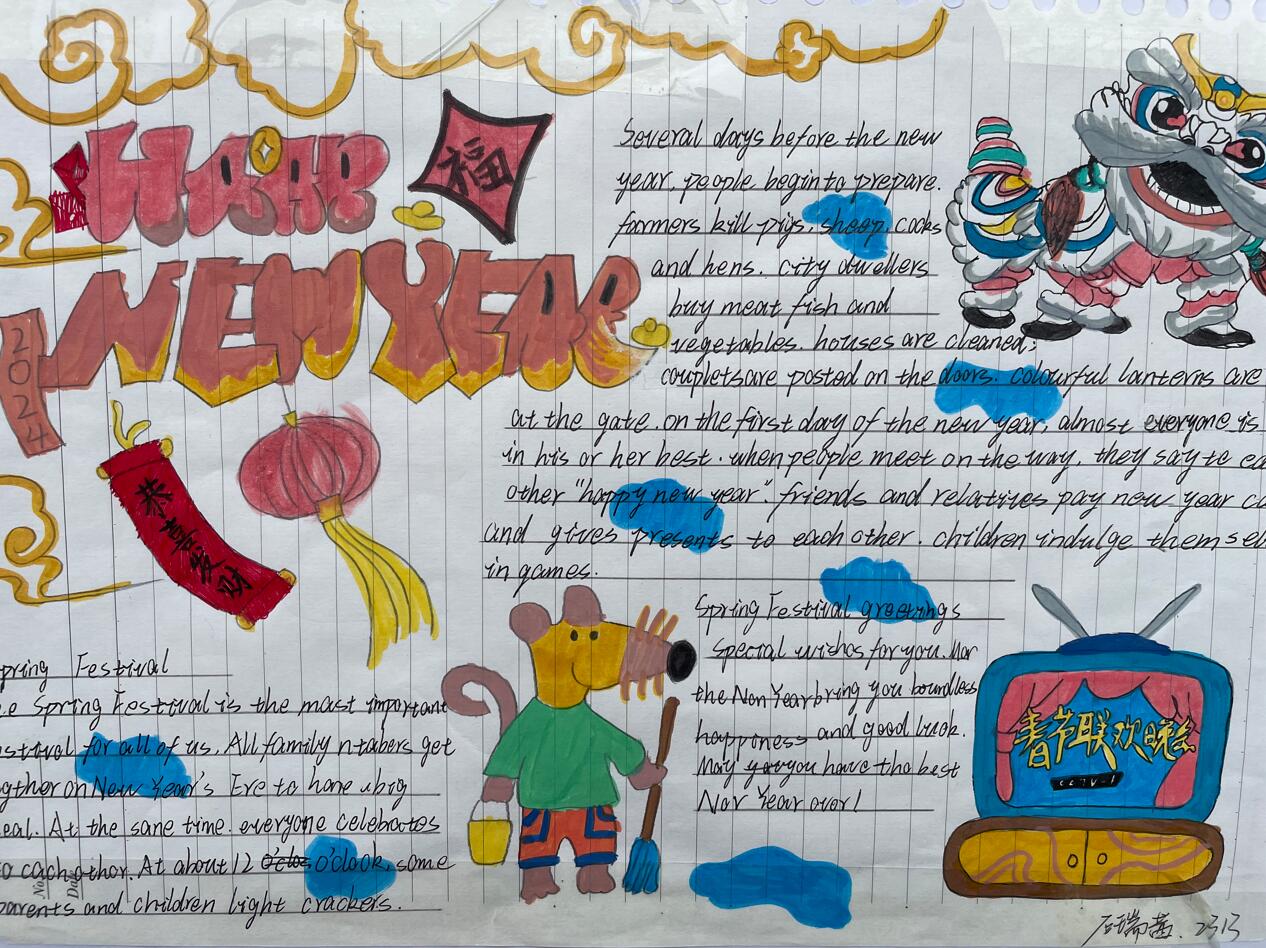 HAPP
福
NEW YEAR
2024
恭喜发财
Several days before the new
year, people begin to prepare.
farmers kill pigs. sheep. cocks
and hens. city dwellers
buy meat fish and
vegetables. houses are cleaned;
coupletsare posted on the doors. colourful lanterns are
at the gate. on the first day of the new year, almost everyone is
in his or her best. when people meet on the way, they say to ea
other "happy new year". friends and relatives pay new year c
and gives presents to each other. children indulge themsel
in games.
Spring Festival greetings
Special wishes for you. Mar
the Non Year bring you boundless
happoness and good luck.
May you have tho best
Nor Year over!
春节联欢晚会
pring Festival
e Spring Festival is the most important
stival for all of us. All family ntabers get
gther on New Year's Ere to hane abig
eal. At the sane time. everyone celebrates
o cachothor. At about 12 o'clock, some
parents and children light crackers.
No.
Date
瑞茜. 2313